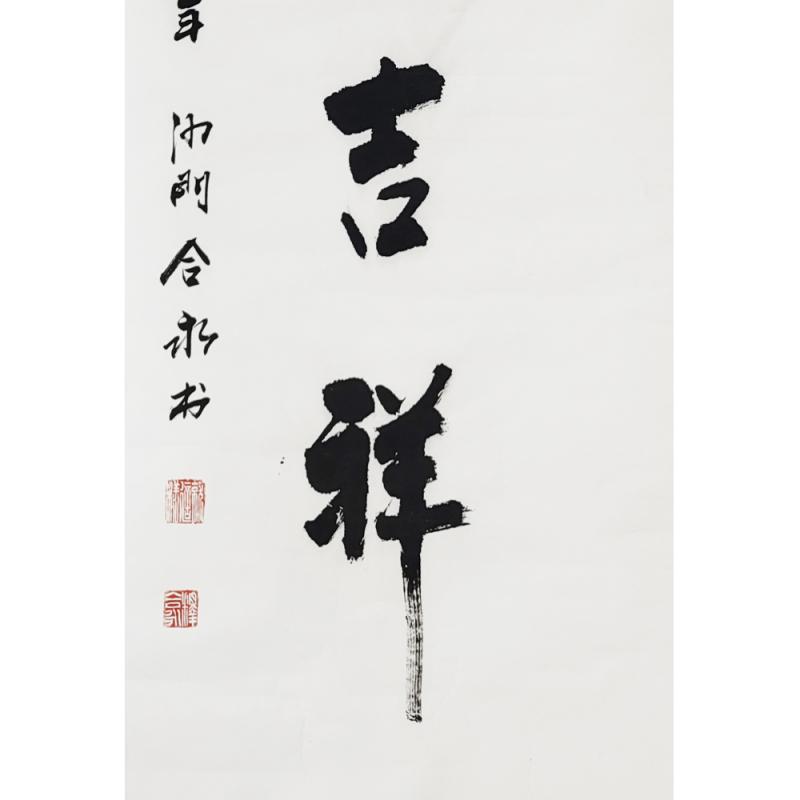 吉祥
年 沙門合永书